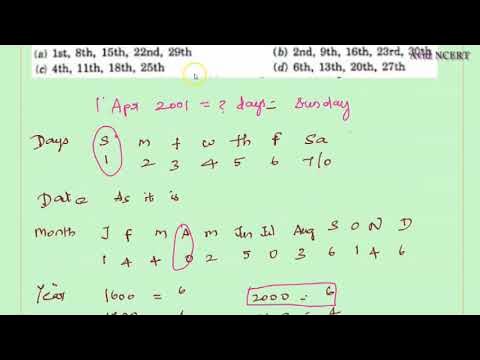 (a) 1st, 8th, 15th, 22nd, 29th (b) 2nd, 9th, 16th, 23rd, 30th
NCERT
(c) 4th, 11th, 18th, 25th (d) 6th, 13th, 20th, 27th
1 Apr 2001 = ? days = Sunday
Days S m t w Th f Sa
1 2 3 4 5 6 7/0
Date As it is
month J f m A m Jun Jul Aug S O N D
1 4 4 0 2 5 0 3 6 1 4 6
Year 1600 = 6 2000 = 6